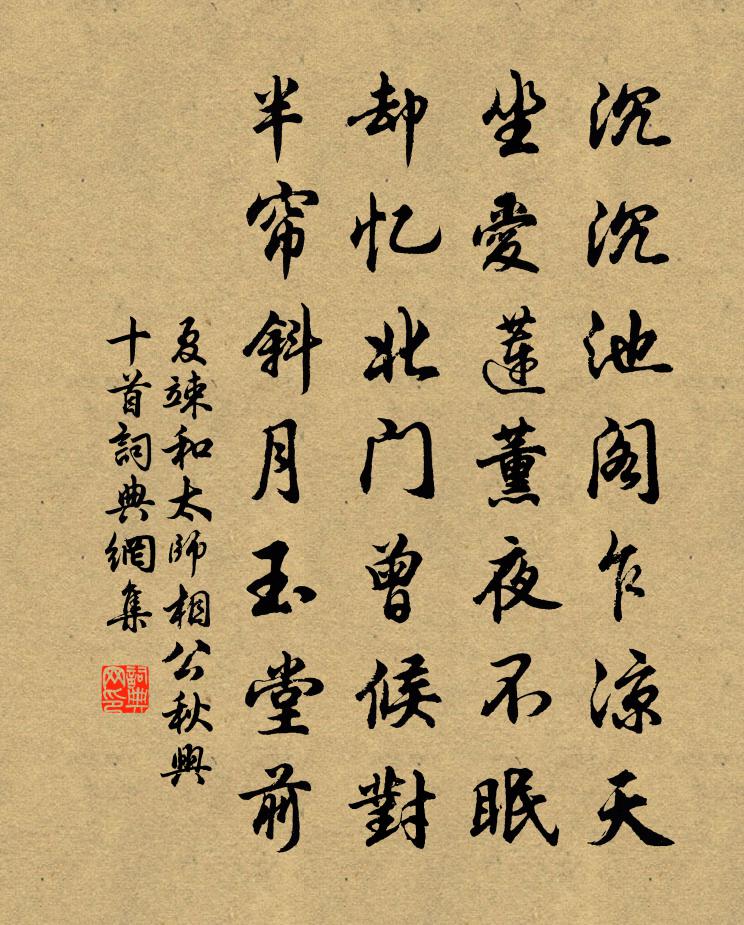 沉沉池阁乍凉天
坐愛蓮薰夜不眠
却忆北门曾候對
半帘斜月玉堂前
夏竦和太師相公秋興
十首詞典網集
詞典
网印